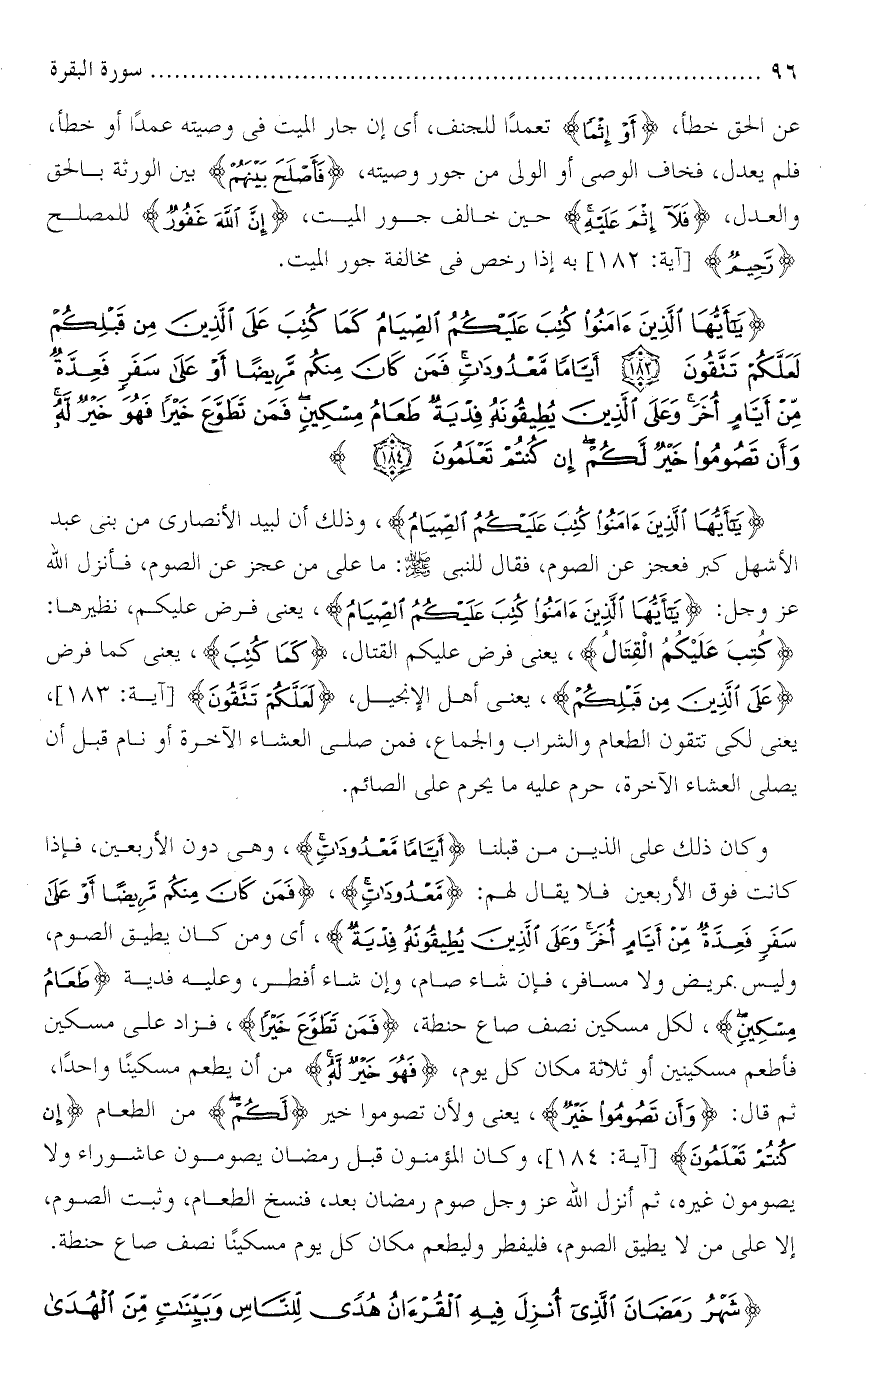 ٩٦ ........................................................................ سورة البقرة
عن الحق خطأ، ﴿أَوْ إِثْمًا﴾ تعمدًا للجنف، أى إن جار الميت فى وصيته عمدًا أو خطأ،
فلم يعدل، فخاف الوصى أو الولى من جور وصيته، ﴿فَأَصْلَحَ بَيْنَهُمْ﴾ بين الورثة بالحق
والعدل، ﴿فَلَآ إِثْمَ عَلَيْهِ﴾ حين خالف جور الميت، ﴿إِنَّ ٱللَّهَ غَفُورٌ﴾ للمصلح
﴿رَّحِيمٌ﴾ [آية: ١٨٢] به إذا رخص فى مخالفة جور الميت.
﴿يَٰٓأَيُّهَا ٱلَّذِينَ ءَامَنُوا۟ كُتِبَ عَلَيْكُمُ ٱلصِّيَامُ كَمَا كُتِبَ عَلَى ٱلَّذِينَ مِن قَبْلِكُمْ
لَعَلَّكُمْ تَتَّقُونَ ١٨٣ أَيَّامًا مَّعْدُودَٰتٍ ۚ فَمَن كَانَ مِنكُم مَّرِيضًا أَوْ عَلَىٰ سَفَرٍ فَعِدَّةٌ
مِّنْ أَيَّامٍ أُخَرَ ۚ وَعَلَى ٱلَّذِينَ يُطِيقُونَهُۥ فِدْيَةٌ طَعَامُ مِسْكِينٍ ۖ فَمَن تَطَوَّعَ خَيْرًا فَهُوَ خَيْرٌ لَّهُۥ ۚ
وَأَن تَصُومُوا۟ خَيْرٌ لَّكُمْ ۖ إِن كُنتُمْ تَعْلَمُونَ ١٨٤ ﴾
﴿يَٰٓأَيُّهَا ٱلَّذِينَ ءَامَنُوا۟ كُتِبَ عَلَيْكُمُ ٱلصِّيَامُ﴾، وذلك أن لبيد الأنصارى من بنى عبد
الأشهل كبر فعجز عن الصوم، فقال للنبى ﷺ: ما على من عجز عن الصوم، فأنزل الله
عز وجل: ﴿يَٰٓأَيُّهَا ٱلَّذِينَ ءَامَنُوا۟ كُتِبَ عَلَيْكُمُ ٱلصِّيَامُ﴾، يعنى فرض عليكم، نظيرها:
﴿كُتِبَ عَلَيْكُمُ الْقِتَالُ﴾، يعنى فرض عليكم القتال، ﴿كَمَا كُتِبَ﴾، يعنى كما فرض
﴿عَلَى ٱلَّذِينَ مِن قَبْلِكُمْ﴾، يعنى أهل الإنجيل، ﴿لَعَلَّكُمْ تَتَّقُونَ﴾ [آية: ١٨٣]،
يعنى لكى تتقون الطعام والشراب والجماع، فمن صلى العشاء الآخرة أو نام قبل أن
يصلى العشاء الآخرة، حرم عليه ما يحرم على الصائم.
وكان ذلك على الذين من قبلنا ﴿أَيَّامًا مَّعْدُودَٰتٍ ۚ﴾، وهى دون الأربعين، فإذا
كانت فوق الأربعين فلا يقال لهم: ﴿مَّعْدُودَٰتٍ ۚ﴾، ﴿فَمَن كَانَ مِنكُم مَّرِيضًا أَوْ عَلَىٰ
سَفَرٍ فَعِدَّةٌ مِّنْ أَيَّامٍ أُخَرَ ۚ وَعَلَى ٱلَّذِينَ يُطِيقُونَهُۥ فِدْيَةٌ﴾، أى ومن كان يطيق الصوم،
وليس بمريض ولا مسافر، فإن شاء صام، وإن شاء أفطر، وعليه فدية ﴿طَعَامُ
مِسْكِينٍ ۖ﴾، لكل مسكين نصف صاع حنطة، ﴿فَمَن تَطَوَّعَ خَيْرًا﴾، فزاد على مسكين
فأطعم مسكينين أو ثلاثة مكان كل يوم، ﴿فَهُوَ خَيْرٌ لَّهُۥ ۚ﴾ من أن يطعم مسكينًا واحدًا،
ثم قال: ﴿وَأَن تَصُومُوا۟ خَيْرٌ﴾، يعنى ولأن تصوموا خير ﴿لَّكُمْ ۖ﴾ من الطعام ﴿إِن
كُنتُمْ تَعْلَمُونَ﴾ [آية: ١٨٤]، وكان المؤمنون قبل رمضان يصومون عاشوراء ولا
يصومون غيره، ثم أنزل الله عز وجل صوم رمضان بعد، فنسخ الطعام، وثبت الصوم،
إلا على من لا يطيق الصوم، فليفطر وليطعم مكان كل يوم مسكينًا نصف صاع حنطة.
﴿شَهْرُ رَمَضَانَ ٱلَّذِىٓ أُنزِلَ فِيهِ ٱلْقُرْءَانُ هُدًى لِّلنَّاسِ وَبَيِّنَٰتٍ مِّنَ ٱلْهُدَىٰ